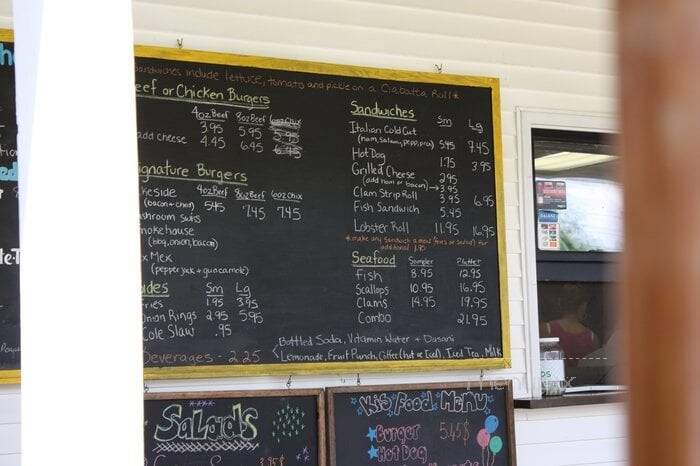 sandwiches include lettuce, tomato and pickle on a Ciabatta Roll*
eef or Chicken Burgers
4oz Beef 8oz Beef 6oz Chix
3.95 5.95
add cheese 4.45 6.95
ignature Burgers
keside 4oz Beef 8oz Beef 6oz Chix
(bacon + chedd) 5.45 7.45 7.45
shroom Swiss
mokehouse
(bbq, onion, bacon)
x Mex
(pepper jack + guacamole)
ides Sm Lg
ries 1.95 3.95
Onion Rings 2.95 5.95
Cole Slaw .95
Beverages - 2.25
Bottled Soda, Vitamin Water + Dasani
Lemonade, Fruit Punch, Coffee (hot or Iced), Iced Tea, Milk
Sandwiches Sm Lg
Italian Cold Cut
(ham, salami, pepp, prov) 5.45 7.45
Hot Dog 1.75 3.95
Grilled Cheese 2.95
(add ham or bacon) → 3.95
Clam Strip Roll 3.95 6.95
Fish Sandwich 5.45
Lobster Roll 11.95 16.95
*make any sandwich a meal (fries or salad) for
additional 1.95
Seafood Sampler Platter
Fish 8.95 12.95
Scallops 10.95 16.95
Clams 14.95 19.95
Combo 21.95
Salads
3.95
Kids Food Menu
Burger 5.45
Hot Dog